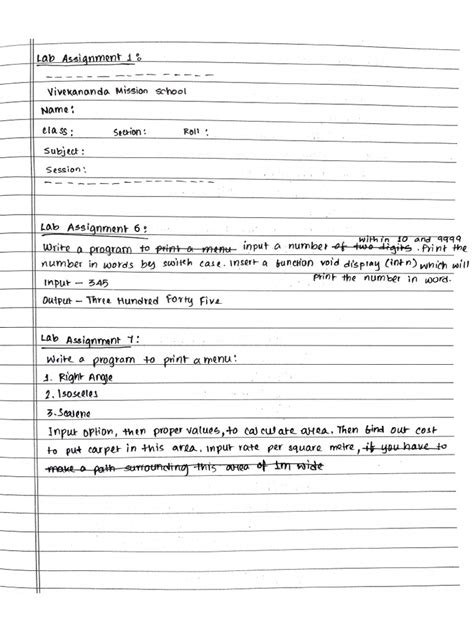 Lab Assignment 1:
Vivekananda Mission School
Name:
Class: Section: Roll:
Subject:
Session:
Lab Assignment 6:
within 10 and 9999
Write a program to print a menu input a number of two digits. Print the
number in words by switch case. Insert a function void display (int n) which will
print the number in word.
Input – 345
Output – Three Hundred Forty Five
Lab Assignment 7:
Write a program to print a menu:
1. Right Angle
2. Isosceles
3. Scalene
Input option, then proper values, to calculate area. Then find out cost
to put carpet in this area. Input rate per square metre, if you have to
make a path surrounding this area of 1m wide